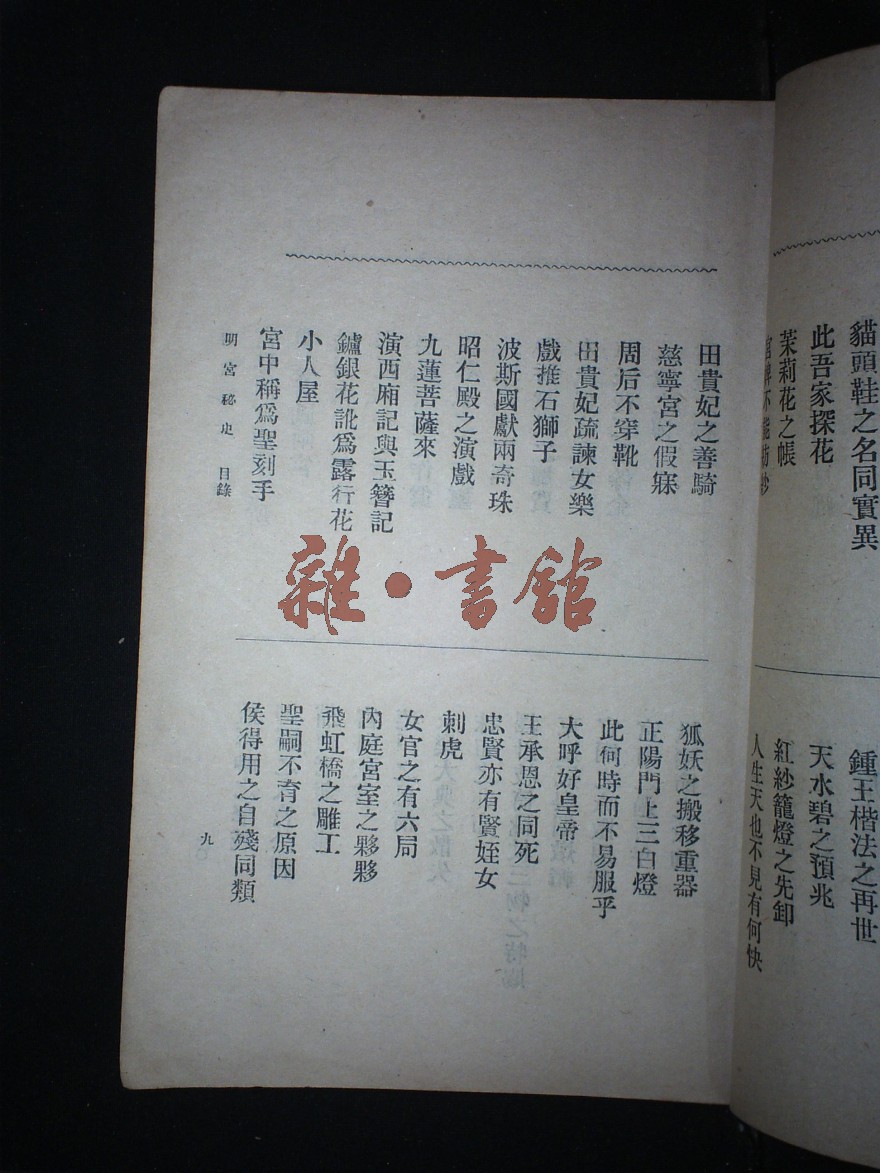 貓頭鞋之名同實異
此吾家探花
茉莉花之帳
鍾王楷法之再世
天水碧之預兆
紅紗籠燈之先卸
人生天也不見有何快
田貴妃之善騎
慈寧宮之假寐
周后不穿靴
田貴妃疏諫女樂
戲推石獅子
波斯國獻兩奇珠
昭仁殿之演戲
九蓮菩薩來
演西廂記與玉簪記
鑪銀花訛爲露行花
小人屋
宮中稱爲聖刻手
狐妖之搬移重器
正陽門上三白燈
此何時而不易服乎
大呼好皇帝
王承恩之同死
忠賢亦有賢姪女
刺虎
女官之有六局
內庭宮室之夥夥
飛虹橋之雕工
聖嗣不育之原因
侯得用之自殘同類
明宮秘史 目錄
九
雜·書館